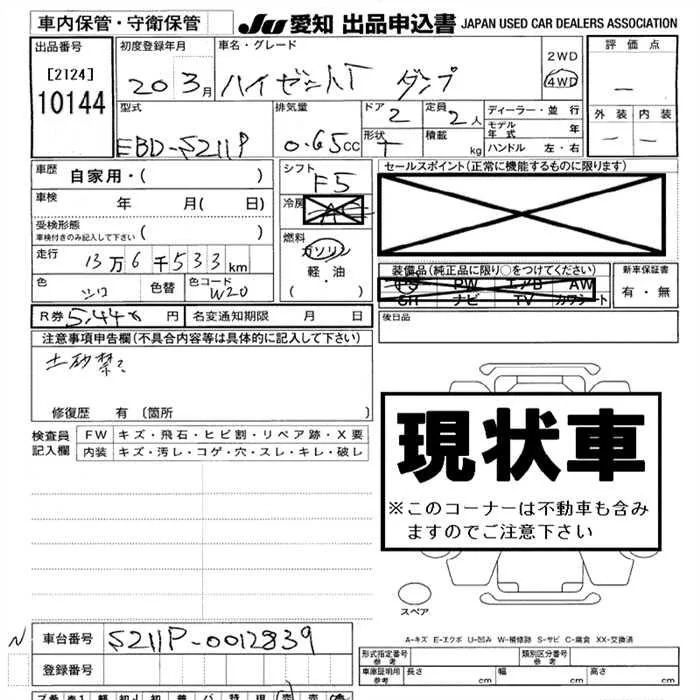 車内保管・守衛保管 JU 愛知 出品申込書 JAPAN USED CAR DEALERS ASSOCIATION
出品番号 初度登録年月 車名・グレード 2WD 4WD 評価点
[2124]
10144
20 3月 ハイゼットT ダンプ
外装 内装
型式 排気量 ドア 定員 ディーラー・並行
EBD-S211P 0.65cc 2 2人
モデル年式 年
形状 T 積載 kg ハンドル 左・右
車歴 自家用・( ) シフト F5 セールスポイント(正常に機能するものに限ります)
車検 年 月( 日) 冷房 AC
受検形態 ( )
車検付きのみ記入して下さい
燃料 ガソリン
軽・油
( )
走行 13万6千533km
装備品(純正品に限り○をつけてください) 新車保証書
PS PW エアB AW 有・無
SR ナビ TV カワシート
色 シロ 色替 色コード W20
R券 5,440円 名変通知期限 月 日 後日品
注意事項申告欄(不具合内容等は具体的に記入して下さい)
土砂禁
修復歴 有 (箇所 )
検査員記入欄 FW キズ・飛石・ヒビ割・リペア跡・X要
内装 キズ・汚レ・コゲ・穴・スレ・キレ・破レ
現状車
※このコーナーは不動車も含み
ますのでご注意下さい
スペア
A-キズ E-エクボ U-凹み W-補修跡 S-サビ C-腐食 XX-交換済
N 車台番号 S211P-0012839
登録番号
形式指定番号 参考 類別区分番号 参考
車庫証明用 参考 長さ cm 幅 cm 高さ cm